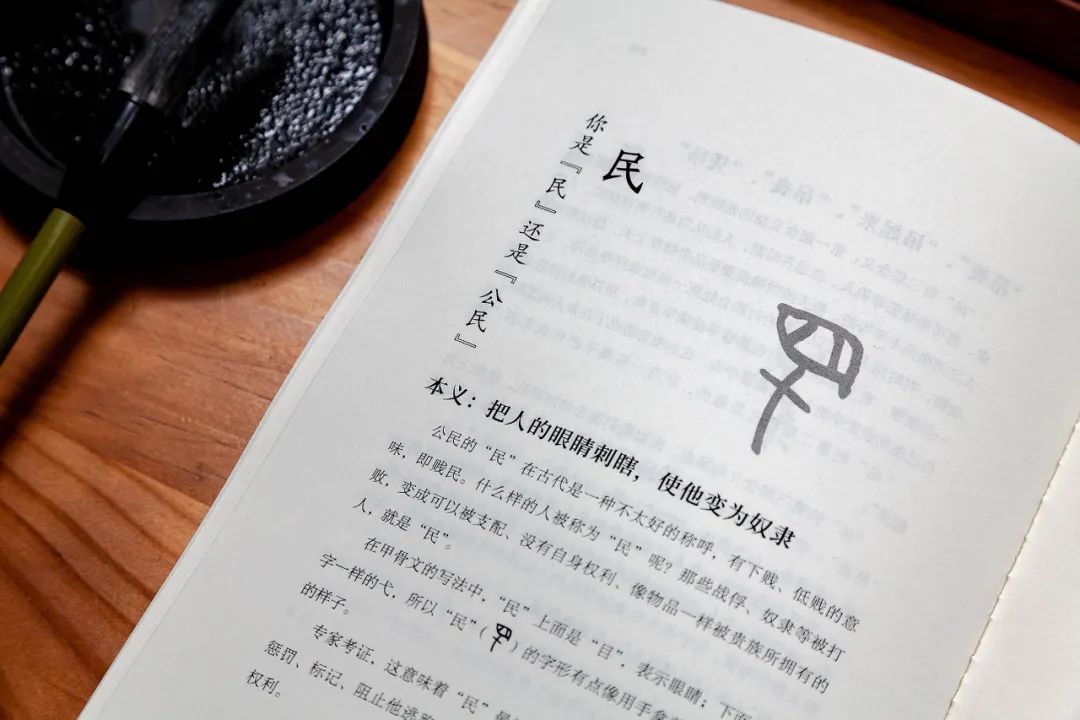 民
你是『民』还是『公民』
本义：把人的眼睛刺瞎，使他变为奴隶
公民的“民”在古代是一种不太好的称呼，有下贱、低贱的意
味，即贱民。什么样的人被称为“民”呢？那些战俘、奴隶等被打
败，变成可以被支配、没有自身权利、像物品一样被贵族所拥有的
人，就是“民”。
在甲骨文的写法中，“民”上面是“目”，表示眼睛；下面
字一样的弋，所以“民”（）的字形有点像用手拿
的样子。
专家考证，这意味着“民”
惩罚、标记、阻止他逃
权利。